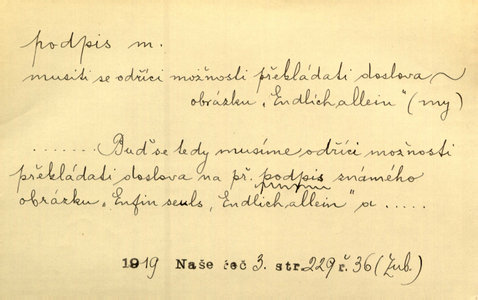 podpis m.
musiti se odříci možnosti překládati doslova ~
obrázku „Endlich allein“ (my)
........ Buď se tedy musíme odříci možnosti
překládati doslova na př. podpis známého
obrázku „Enfin seuls, „Endlich allein“ a .....
1919 Naše řeč 3. str. 229 ř. 36 (Zub.)